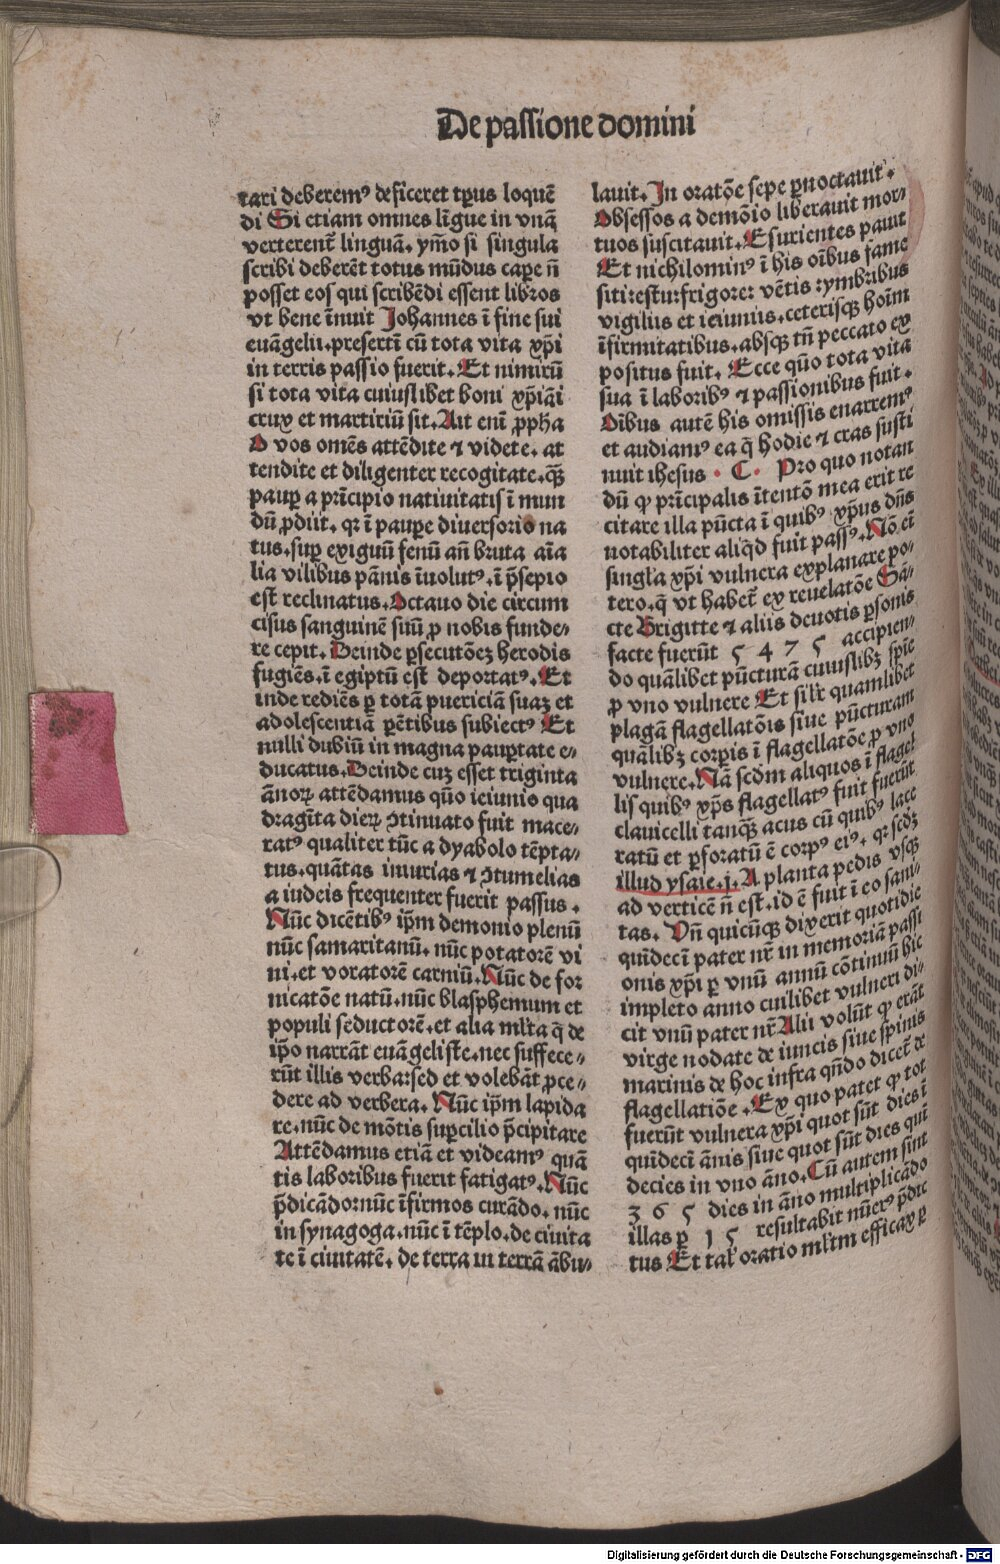 De passione domini
tari deberemꝰ deficeret tp̄us loquē
di Si etiam omnes līgue in vnā
verterent᷑ linguā. ym̄o si singula
scribi deberēt totus mūdus cape n̄
posset eos qui scribēdi essent libros
vt bene īnuit Johannes ī fine sui
euāgelii. presertī cū tota vita xp̄i
in terris passio fuerit. Et nimirū
si tota vita cuiuslibet boni xp̄iāi
crux et martiriū sit. Ait enī ꝓpha
O vos omēs attēdite ⁊ videte. at
tendite et diligenter recogitate. qꝫ
pauꝑ a prīcipio natiuitatis ī mun
dū ꝓdiit. qꝛ ī pauꝑe diuersorio na
tus. suꝑ exiguū fenū an̄ bruta aīa
lia vilibus pānis īuolutꝰ. ī p̄sepio
est reclinatus. Octauo die circum
cisus sanguinē suū ꝓ nobis funde⸗
re cepit. Deinde ꝑsecutōeꝫ herodis
fugiēs. ī egiptū est deportatꝰ. Et
inde rediēs ꝑ totā puericiā suaꝫ et
adolescentiā ꝑētibus subiectꝰ Et
nulli dubiū in magna pauꝑtate e⸗
ducatus. Deinde cuꝫ esset triginta
ānoꝝ attēdamus quō ieiunio qua
dragīta dieꝝ ꝯtinuato fuit mace⸗
ratꝰ qualiter tūc a dyabolo tēpta⸗
tus. quātas iniurias ⁊ ꝯtumelias
a iudeis frequenter fuerit passus.
Nūc dicētibꝰ ip̄m demonio plenū
nūc samaritanū. nūc potatorē vi
ni. et voratorē carniū. Nūc de for
nicatōe natū. nūc blasphemum et
populi seductorē. et alia ml̄ta q̄ de
ip̄o narrāt euāgeliste. nec suffece⸗
rūt illis verba: sed et volebāt ꝓce⸗
dere ad verbera. Nūc ip̄m lapida
re. nūc de mōtis suꝑcilio p̄cipitare
Attēdamus etiā et videamꝰ quā
tis laboribus fuerit fatigatꝰ. Nūc
p̄dicādo: nūc īfirmos curādo. nūc
in synagoga. nūc ī tēplo. de ciuita
te ī ciuitatē. de terra in terrā ābu⸗
lauit. In oratōe sepe ꝑnoctauit.
Obsessos a demōio liberauit mor⸗
tuos suscitauit. Esurientes pauit
Et nichilominꝰ ī his oībus fame
siti: estu: frigore: vētis: ymbribus
vigiliis et ieiuniis. ceterisqꝫ hoīm
īfirmitatibus. absqꝫ tn̄ peccato ex
positus fuit. Ecce quō tota vita
sua ī laboribꝰ ⁊ passionibus fuit.
Oībus autē his omissis enarremꝰ
et audiamꝰ ea q̄ hodie ⁊ cras susti
nuit ihesus · C · Pro quo notan
dū ꝙ prīcipalis ītentō mea erit re
citare illa pūcta ī quibꝰ xp̄us dn̄s
notabiliter aliq̇d fuit passꝰ. Nō eī
singl̄a xp̄i vulnera explanare po⸗
tero. q̄ vt habet᷑ ex reuelatōe Sā⸗
cte Brigitte ⁊ aliis deuotis ꝑsonis
facte fuerūt 5 4 7 5 accipien⸗
do quālibet pūcturā cuiuslibꝫ spīe
ꝓ vno vulnere Et sil̄r quamlibet
plagā flagellatōis siue pūcturam
quālibꝫ corꝑis ī flagellatōe ꝓ vno
vulnere. Nā scdm aliquos ī flagel
lis quibꝰ xp̄s flagellatꝰ fuit fuerūt
clauicelli tanqꝫ acus cū quibꝰ lace
ratū et ꝑforatū ē corpꝰ eiꝰ. qꝛ scdꝫ
illud ysaie. j. A planta pedis vsqꝫ
ad verticē n̄ est. id ē fuit ī eo sani⸗
tas. Vn̄ quicūqꝫ dixerit quotidie
quīdecī pater nr̄ in memoriā passi
onis xp̄i ꝑ vnū annū cōtinuū hic
impleto anno cuilibet vulneri di⸗
cit vnū pater nr̄ Alii volūt ꝙ erāt
virge nodate de iuncis siue spinis
marinis de hoc infra qn̄do dicet᷑ de
flagellatiōe. Ex quo patet ꝙ tot
fuerūt vulnera xp̄i quot sūt dies ī
quīdecī ānis siue quot sūt dies quī
decies in vno āno. Cū autem sint
3 6 5 dies in āno multiplicādo
illas ꝑ 1 5 resultabit nūerꝰ p̄dic
tus Et tal̄ oratio ml̄tm efficax ꝑ
Digitalisierung gefördert durch die Deutsche Forschungsgemeinschaft - DFG